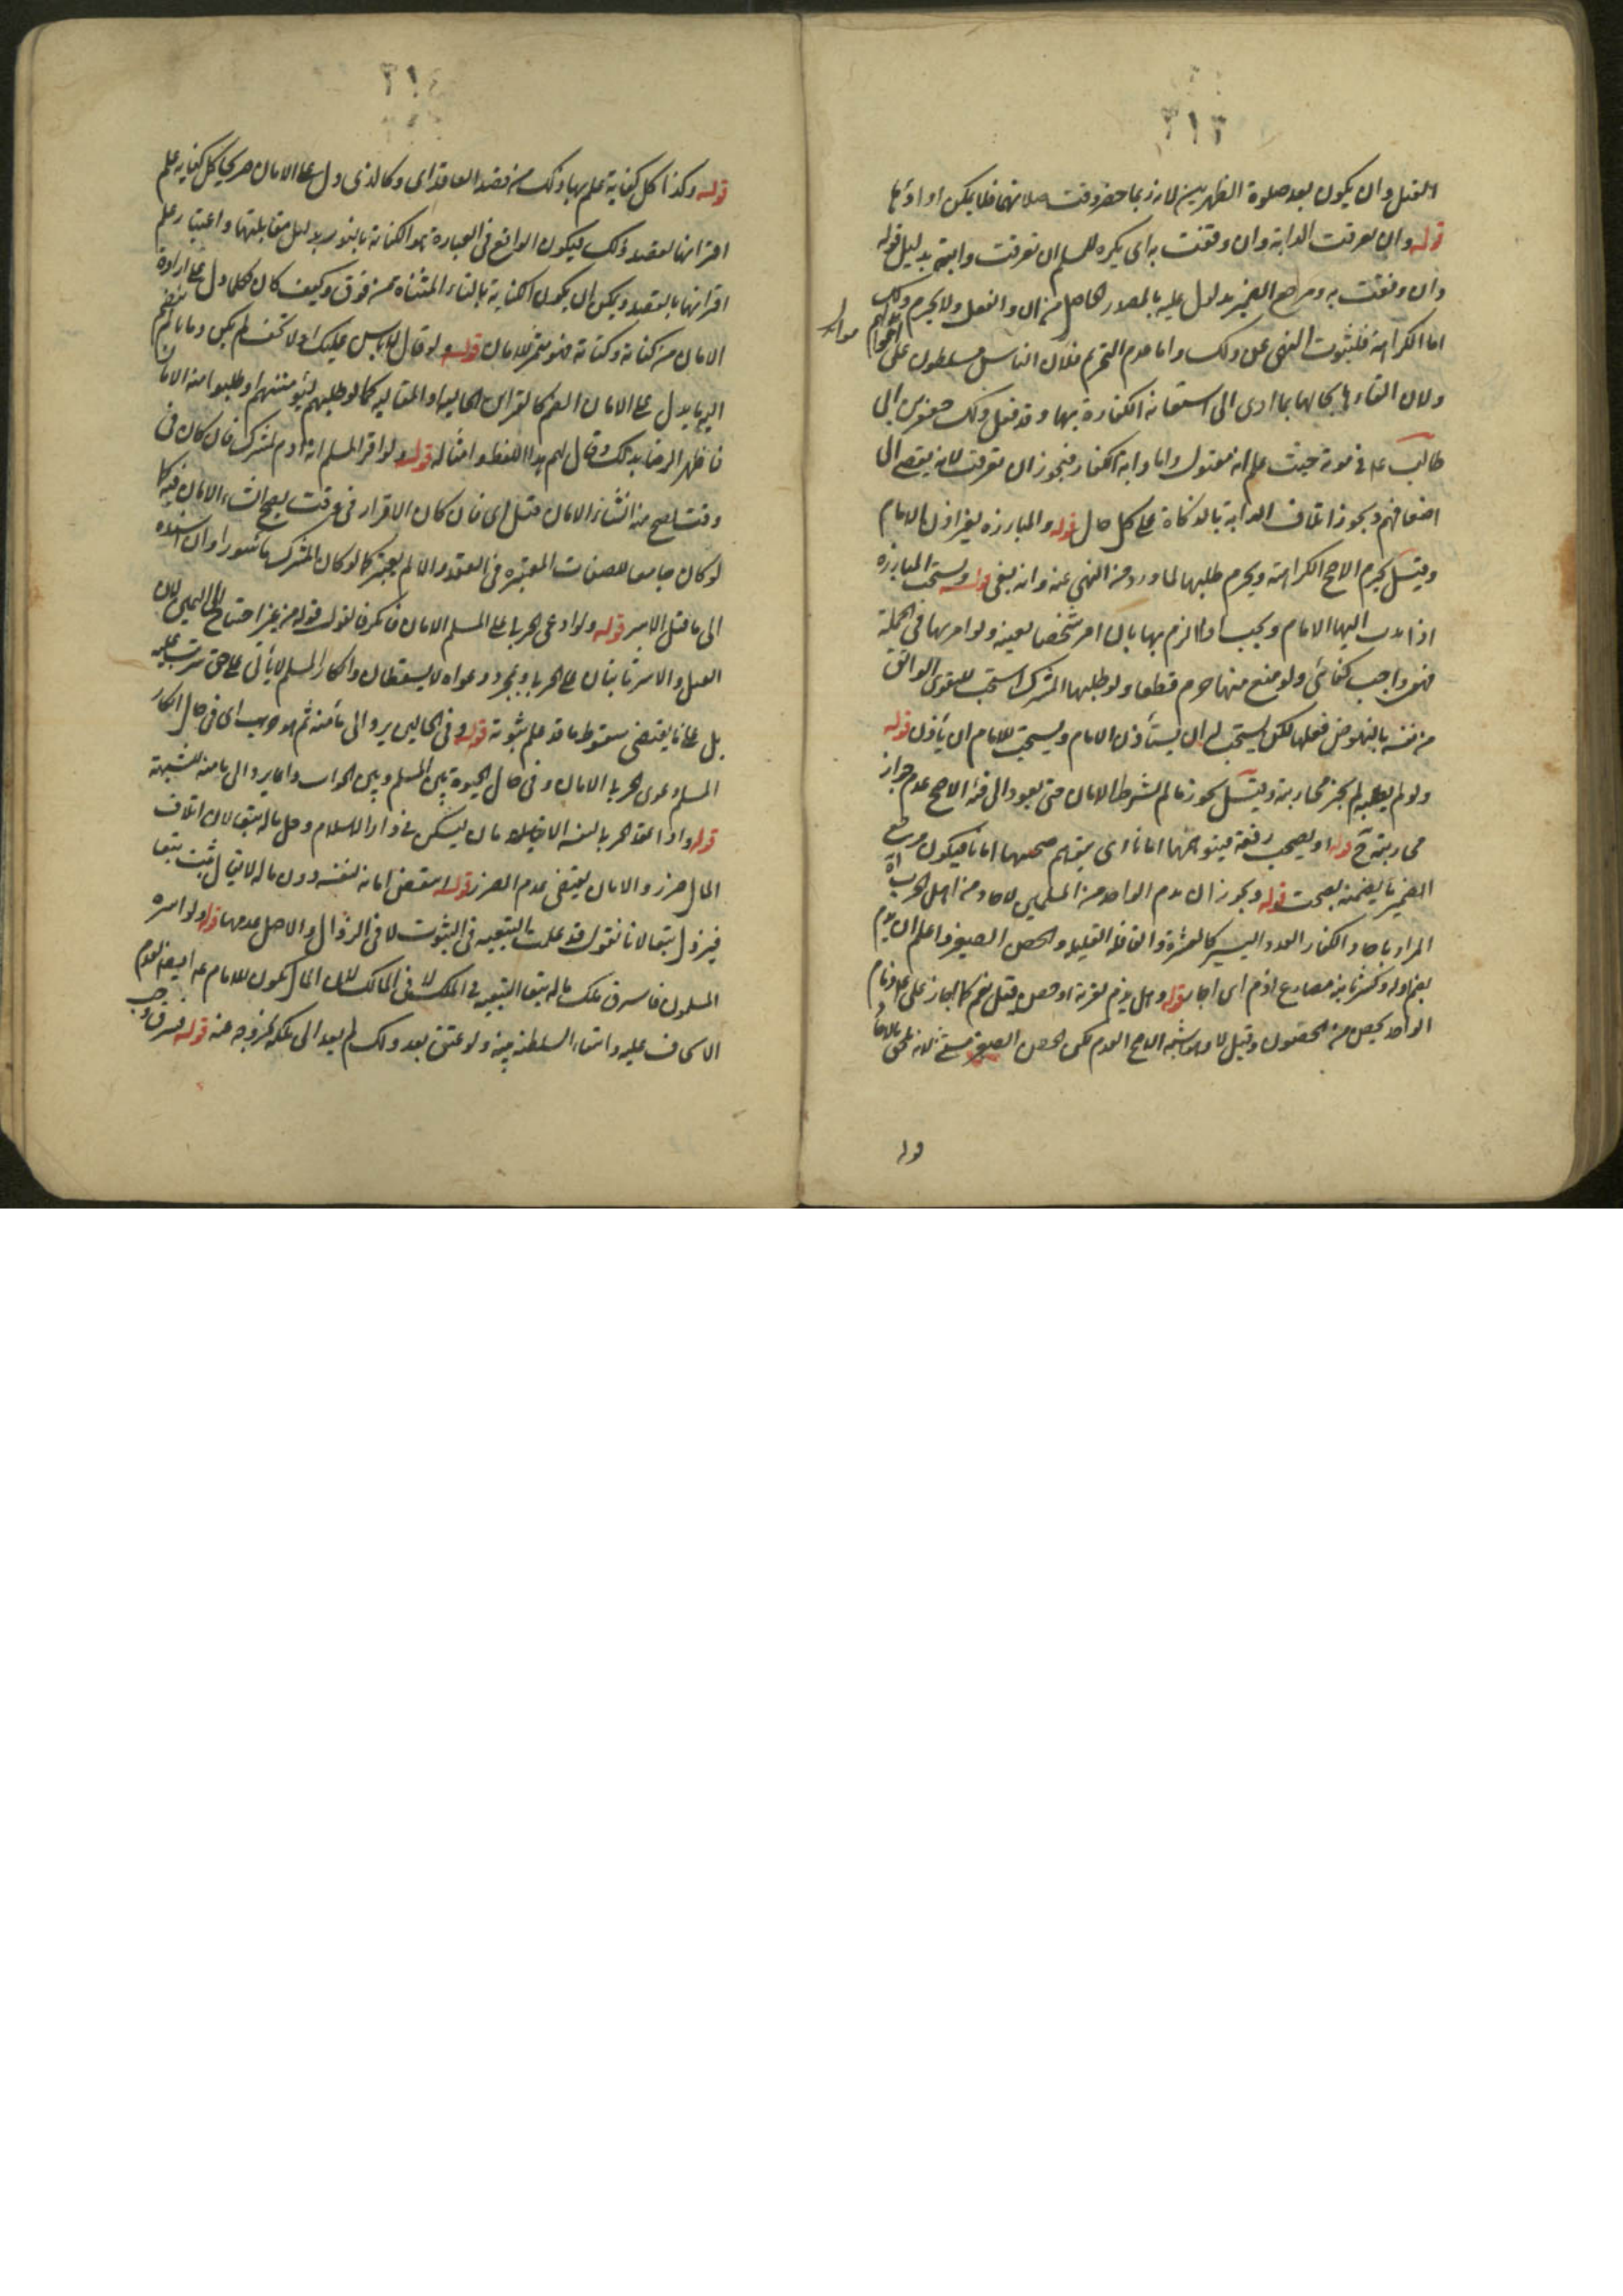 ٣١٣
القتل وان يكون بعد صلوة الظهرين لانه ربما حضر وقت صلاتها فلا يمكن اداؤها
قوله وان يعرقب الدابة وان وقفت به اى يكره للمسلم ان يعرقب دابته بدليل قوله
وان وقفت به ومرجع الضمير مدلول عليه بالمصدر الحاصل من ان والفعل ولا يحرم ذلك
اما الكراهة فلثبوت النهى عن ذلك واما عدم التحريم فلان الناس مسلطون على اموالهم
ولان القاءها بحالها بما ادى الى استعانة الكفار بها وقد فعل ذلك جعفر بن ابى
طالب ع في موته حيث علم انه مقتول واما دابة الكفار فيجوز ان تعرقب لانه يفضى الى
اضعافهم ويجوز اتلاف الدابة بالذكاة على كل حال قوله والمبارزة بغير اذن الامام
وقيل يحرم الاصح الكراهة ويحرم طلبها لما ورد من النهى عنه وانه بغى قوله ويستحب المبارزة
اذا ندب اليها الامام ويجب اذا الزم بها بان امر شخصا بعينه ولو امر بها في الجملة
فهو واجب كفائى ولو منع منها حرم قطعا ولو طلبها المشرك استحب للقوى الواثق
من نفسه بالنهوض فعلها لكن يستحب له ان يستأذن الامام ويستحب للامام ان يأذن قوله
ولو لم يطلبه لم يجز محاربته وقيل يجوز ما لم يشترط الامان حتى يعود الى فئة الاصح عدم جواز
محاربته ح قوله او يصحب رفقة فيتوهمها امانا اى يتوهم صحبتها امانا فيكون مرجع
الضمير ما يضمنه يصحب قوله ويجوز ان يذم الواحد من المسلمين لآحاد من اهل الحرب
المراد بآحاد الكفار العدد اليسير كالعشرة والقافلة القليلة والحصن الصغير واعلم ان يذم
بضم اوله وكسر ثانيه مضارع اذم اى اجار قوله وهل يذم لقرية او حصن قيل نعم كما اجاز على ع ذمام
الواحد لحصن من الحصون وقيل لا وهو اشبه الاصح العدم لكن الحصن الصغير مستثنى لانه ملحق بالآحاد
قوله
٣١٤
قوله وكذا كل كناية علم بها ذلك من قصد العاقد اى وكالذى دل على الامان صريحا كل كناية علم
اقترانها بقصد ذلك فيكون الواقع في العبارة هو الكناية بالنون بدليل مقابلتها واعتبار علم
اقترانها بالقصد ويمكن ان يكون الكتابة بالتاء المثناة من فوق وكيف كان فكلما دل على ارادة
الامان من كناية وكتابة فهو مثمر للامان قوله ولو قال لا بأس عليك او لا تخف لم يكن ذماما ما لم ينضم
اليه ما يدل على الامان الضم كالقرائن الحالية او المقالية كما لو طلبهم ليؤمنهم او طلبوا منه الامان
فاظهر الرضا بذلك وقال لهم هذا اللفظ وامثاله قوله ولو اقر المسلم انه اذم لمشرك فان كان فى
وقت يصح منه انشاء الامان قبل اى فان كان الاقرار فى وقت يصح انشاء الامان فيه كما
لو كان جامعا للصفات المعتبرة فى العقد والا لم يعتبر كما لو كان المشرك مأسورا وان اسنده
الى ما قبل الاسر قوله ولو ادعى الحربى على المسلم الامان فانكر فالقول قوله من غير احتياج الى اليمين لان
القتل والاسر ثابتان على الحربى وبمجرد دعواه لا يسقطان وانكار المسلم لا يأتى على حق ترتب عليه
بل على ما يقتضى سقوط ما قد علم ثبوته قوله وفى الحالين يرد الى مأمنه ثم هو حرب اى فى حال انكار
المسلم دعوى الحربى الامان وفى حال الحيلولة بين المسلم وبين الجواب وانما يرد الى مأمنه للشبهة
قوله واذا عقد الحربى لنفسه الامان ليسكن فى دار الاسلام دخل ماله تبعا لان اتلاف
المال ضرر والامان يقتضى عدم الضرر قوله انتقض امانه لنفسه دون ماله لا يقال ثبت تبعا
فيزول تبعا لانا نقول قد علمت التبعية فى الثبوت لا فى الزوال والاصل عدمها قوله ولو اسره
المسلمون فاسترق ملك ماله تبعا التبعية فى الملك لا فى المالك لان المال يكون للامام ع ايضا لعدم
الايجاف عليه وانتفاء السلطنة عنه ولو عتق بعد ذلك لم يعد الى ملكه لخروجه عنه قوله فسرق وجب